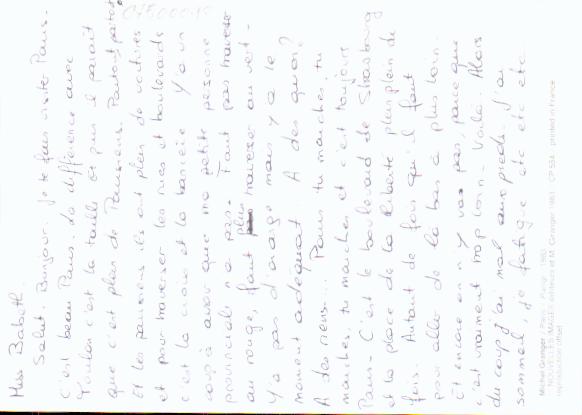 Miss Babeth.
Salut. Bonjour. Je te fais visiter Paris.
C'est beau Paris. La différence avec
Toulon c'est la taille. Et puis il paraît
que c'est plein de Parisiens. Partout partout
Et les parisiens ils ont plein de voitures
et pour traverser les rues et boulevards
c'est la croix et la bannière. Y'a un
coup à avoir que ma petite personne
provinciale n'a pas. Faut pas traverser
au rouge, faut traverser au vert.
Y'a pas d'orange mais y a le
moment adéquat. A des quoi?
A des riens... Paris tu marches tu
marches, tu marches et c'est toujours
Paris. C'est le boulevard de Strasbourg
et la place de la liberté plus plein de
fois. Autant de fois qu'il faut
pour aller de là bas à plus loin.
Et encore on n'y va pas, parce que
c'est vraiment trop loin. Voilà. Alors
du coup j'ai mal aux pieds, j'ai
sommeil, je fatigue etc etc etc.
Michel Granger / Paris - Pump - 1980
NOUVELLES IMAGES éditeurs et M. Granger 1981 CP 534 printed in France
reproduction offset